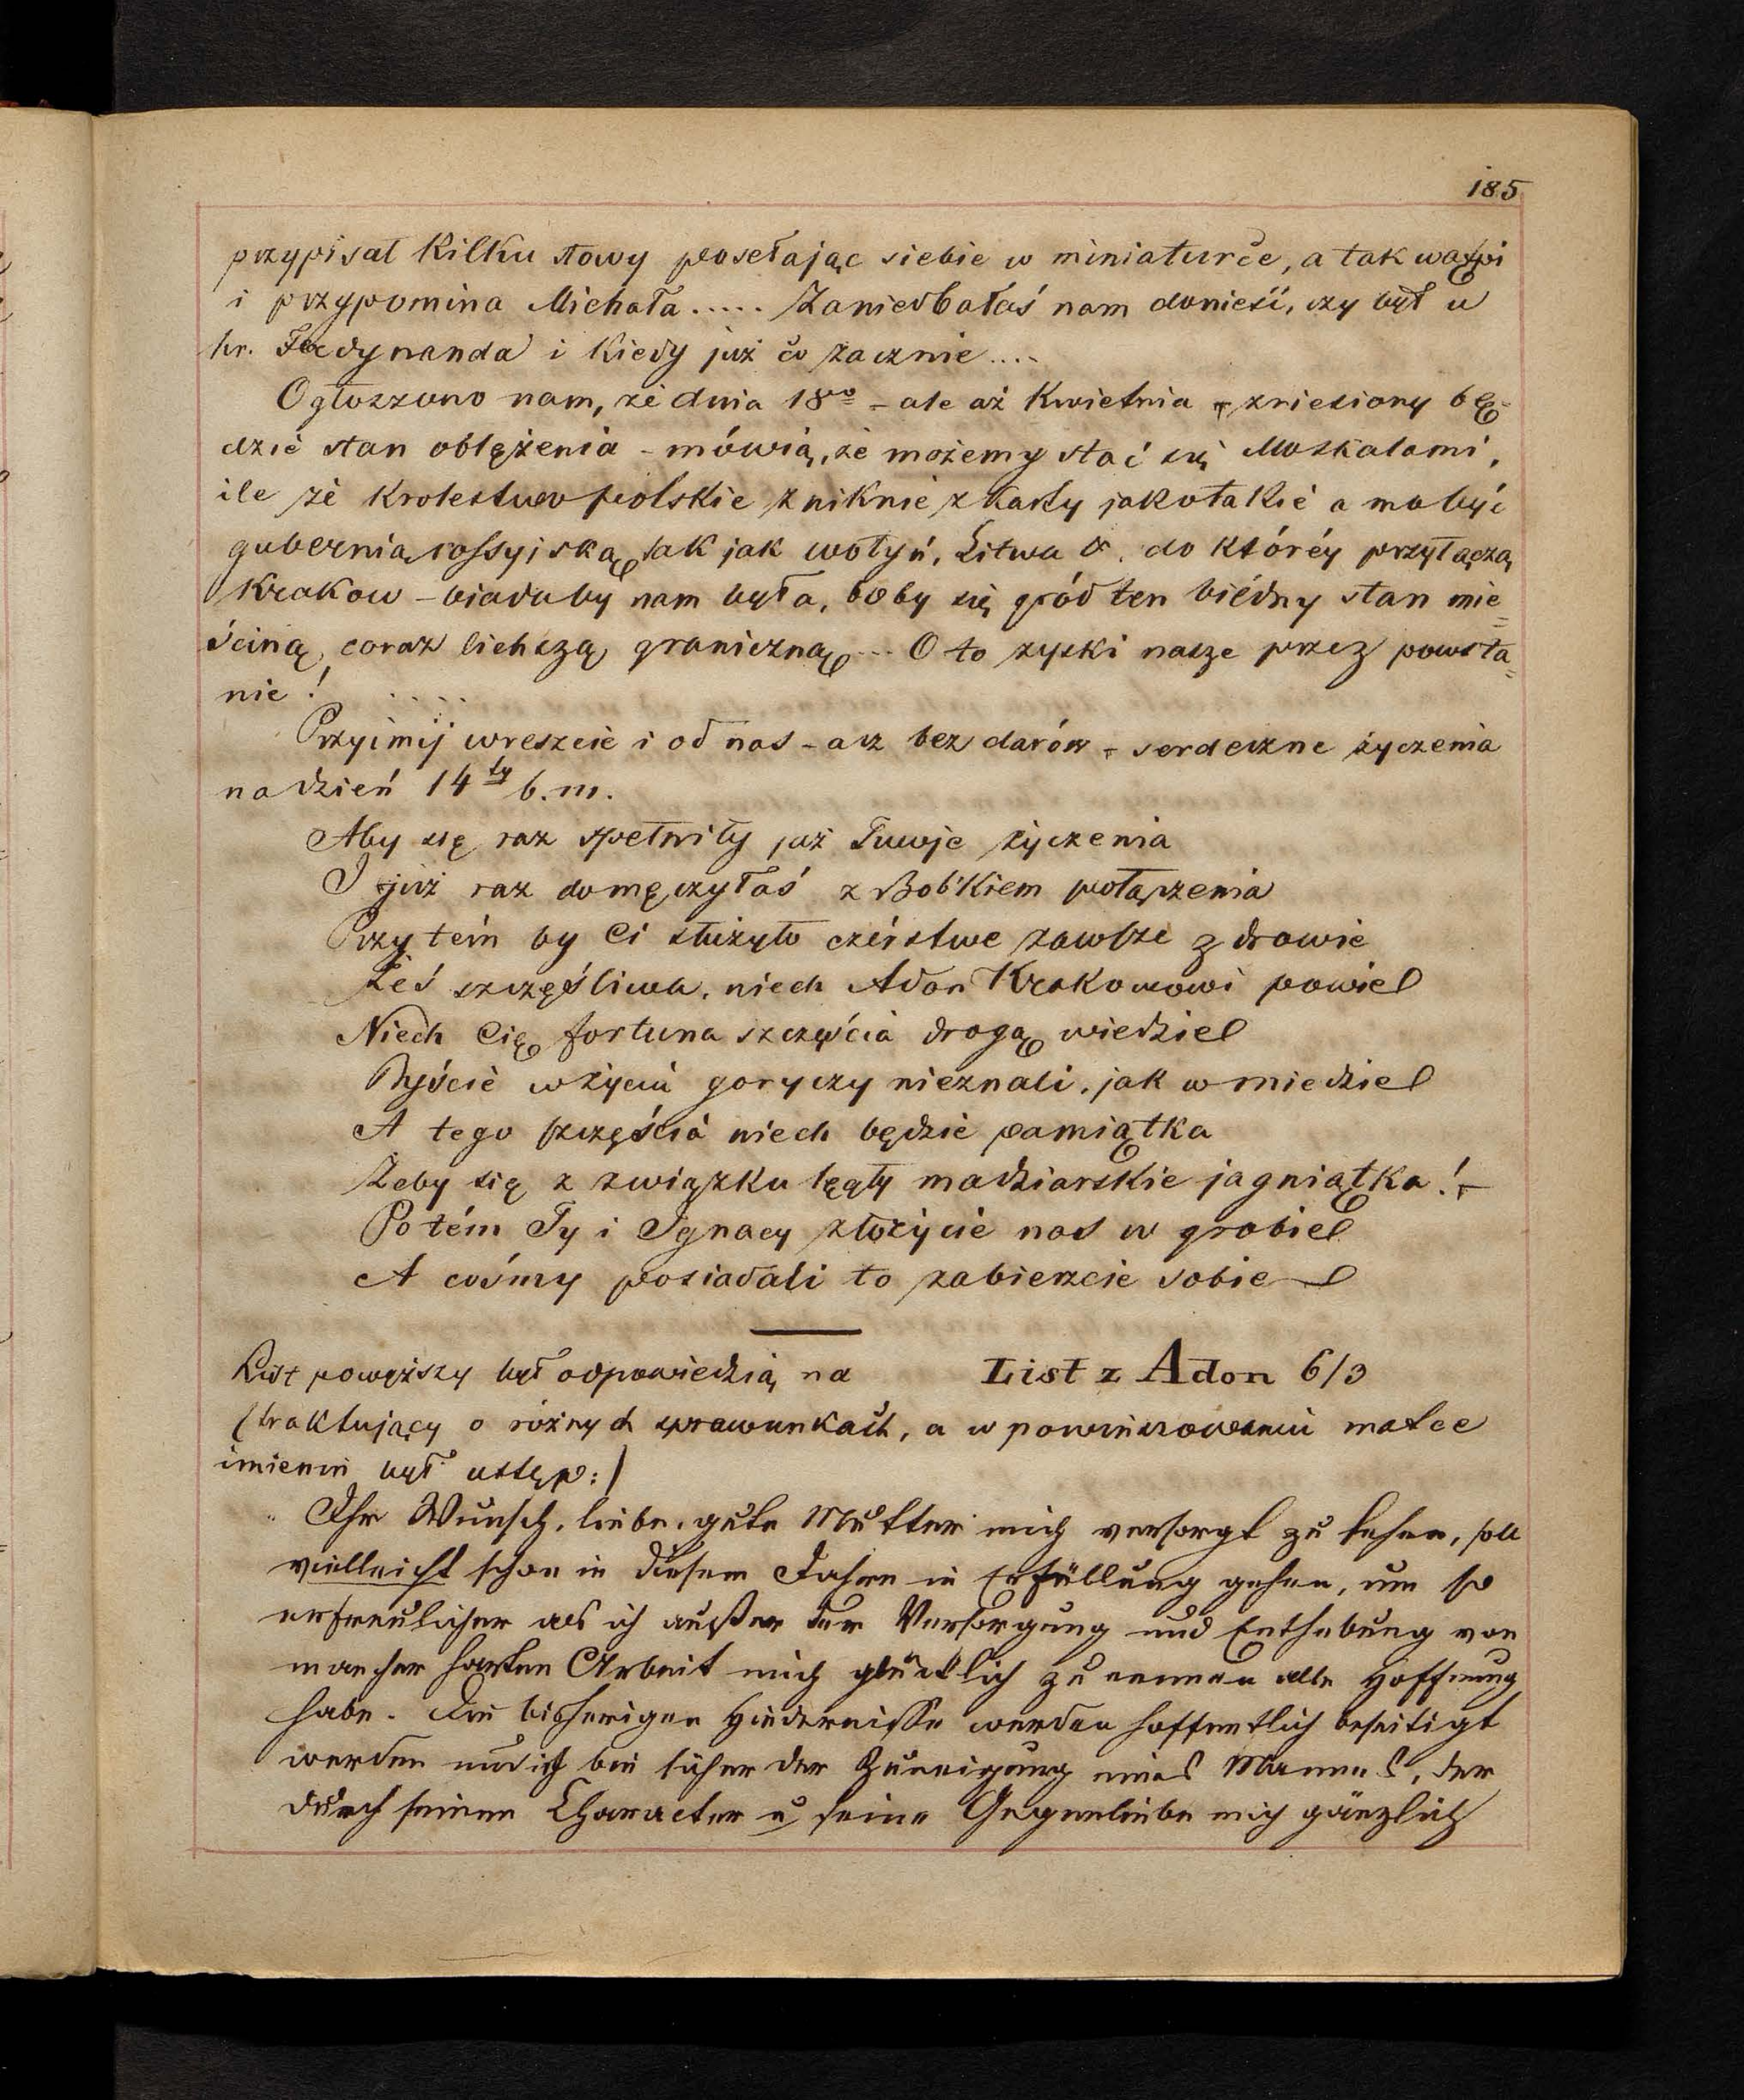 185
przypisał kilku słowy posełając siebie w miniaturče, a tak wątpi
i przypomina Michała..... Zaniedbałaś nam donieść, czy był u
hr. Ferdynanda i kiedy już čo zacznie....
Ogłoszono nam, że dnia 18go - ale aż Kwietnia - zniesiony bę-
dzie stan oblężenia - mówią, że możemy stać się Moskalami,
ile że Krolestwo polskie zniknie z karty jakotakie a ma być
gubernią rossyjską, tak jak wołyń, Litwa &. do któréy przyłączą
Krakow - biadaby nam była, boby się gród ten biédny stał mie=
ściną, coraz lichszą, graniczną... Oto zyski nasze przez powsta=
nie! ....
Przyimij wreszcie i od nas - acz bez darów - serdeczne życzenia
na dzień 14ty b.m.
Aby się raz spełniły już Twoje życzenia
I już raz domęczyłaś z Bobkiem połączenia
Przytém by Ci służyło czérstwe zawsze zdrowie
Żeś szczęśliwa, niech Adon Krakowowi powie
Niech Cię fortuna szczęścia drogą wiedzie
Byście w życiu goryczy nieznali, jak w miedzie
A tego szczęścia niech będzie pamiątka
Żeby się z związku lęgły madziarskie jagniątka! -
Potém Ty i Ignacy złożycie nas w grobie
A cośmy posiadali to zabierzcie sobie
List powyższy był odpowiedzią na List z Adon 6/3
(traktujący o różnych sprawunkach, a w powinszowaniu matce
imienin był ustęp:)
Ihr Wunsch, liebe, gute Mutter mich versorgt zu sehen, soll
vielleicht schon in diesem Jahre in Erfüllung gehen, um so
erfreulicher als ich außer der Versorgung und Enthebung von
mancher harten Arbeit mich glücklich zu nennen alle Hoffnung
habe. Die bisherigen Hindernisse werden hoffentlich beseitigt
werden und ich bin sicher der Zuneigung eines Mannes, der
durch seinen Character u seine Gegenliebe mich gänzlich